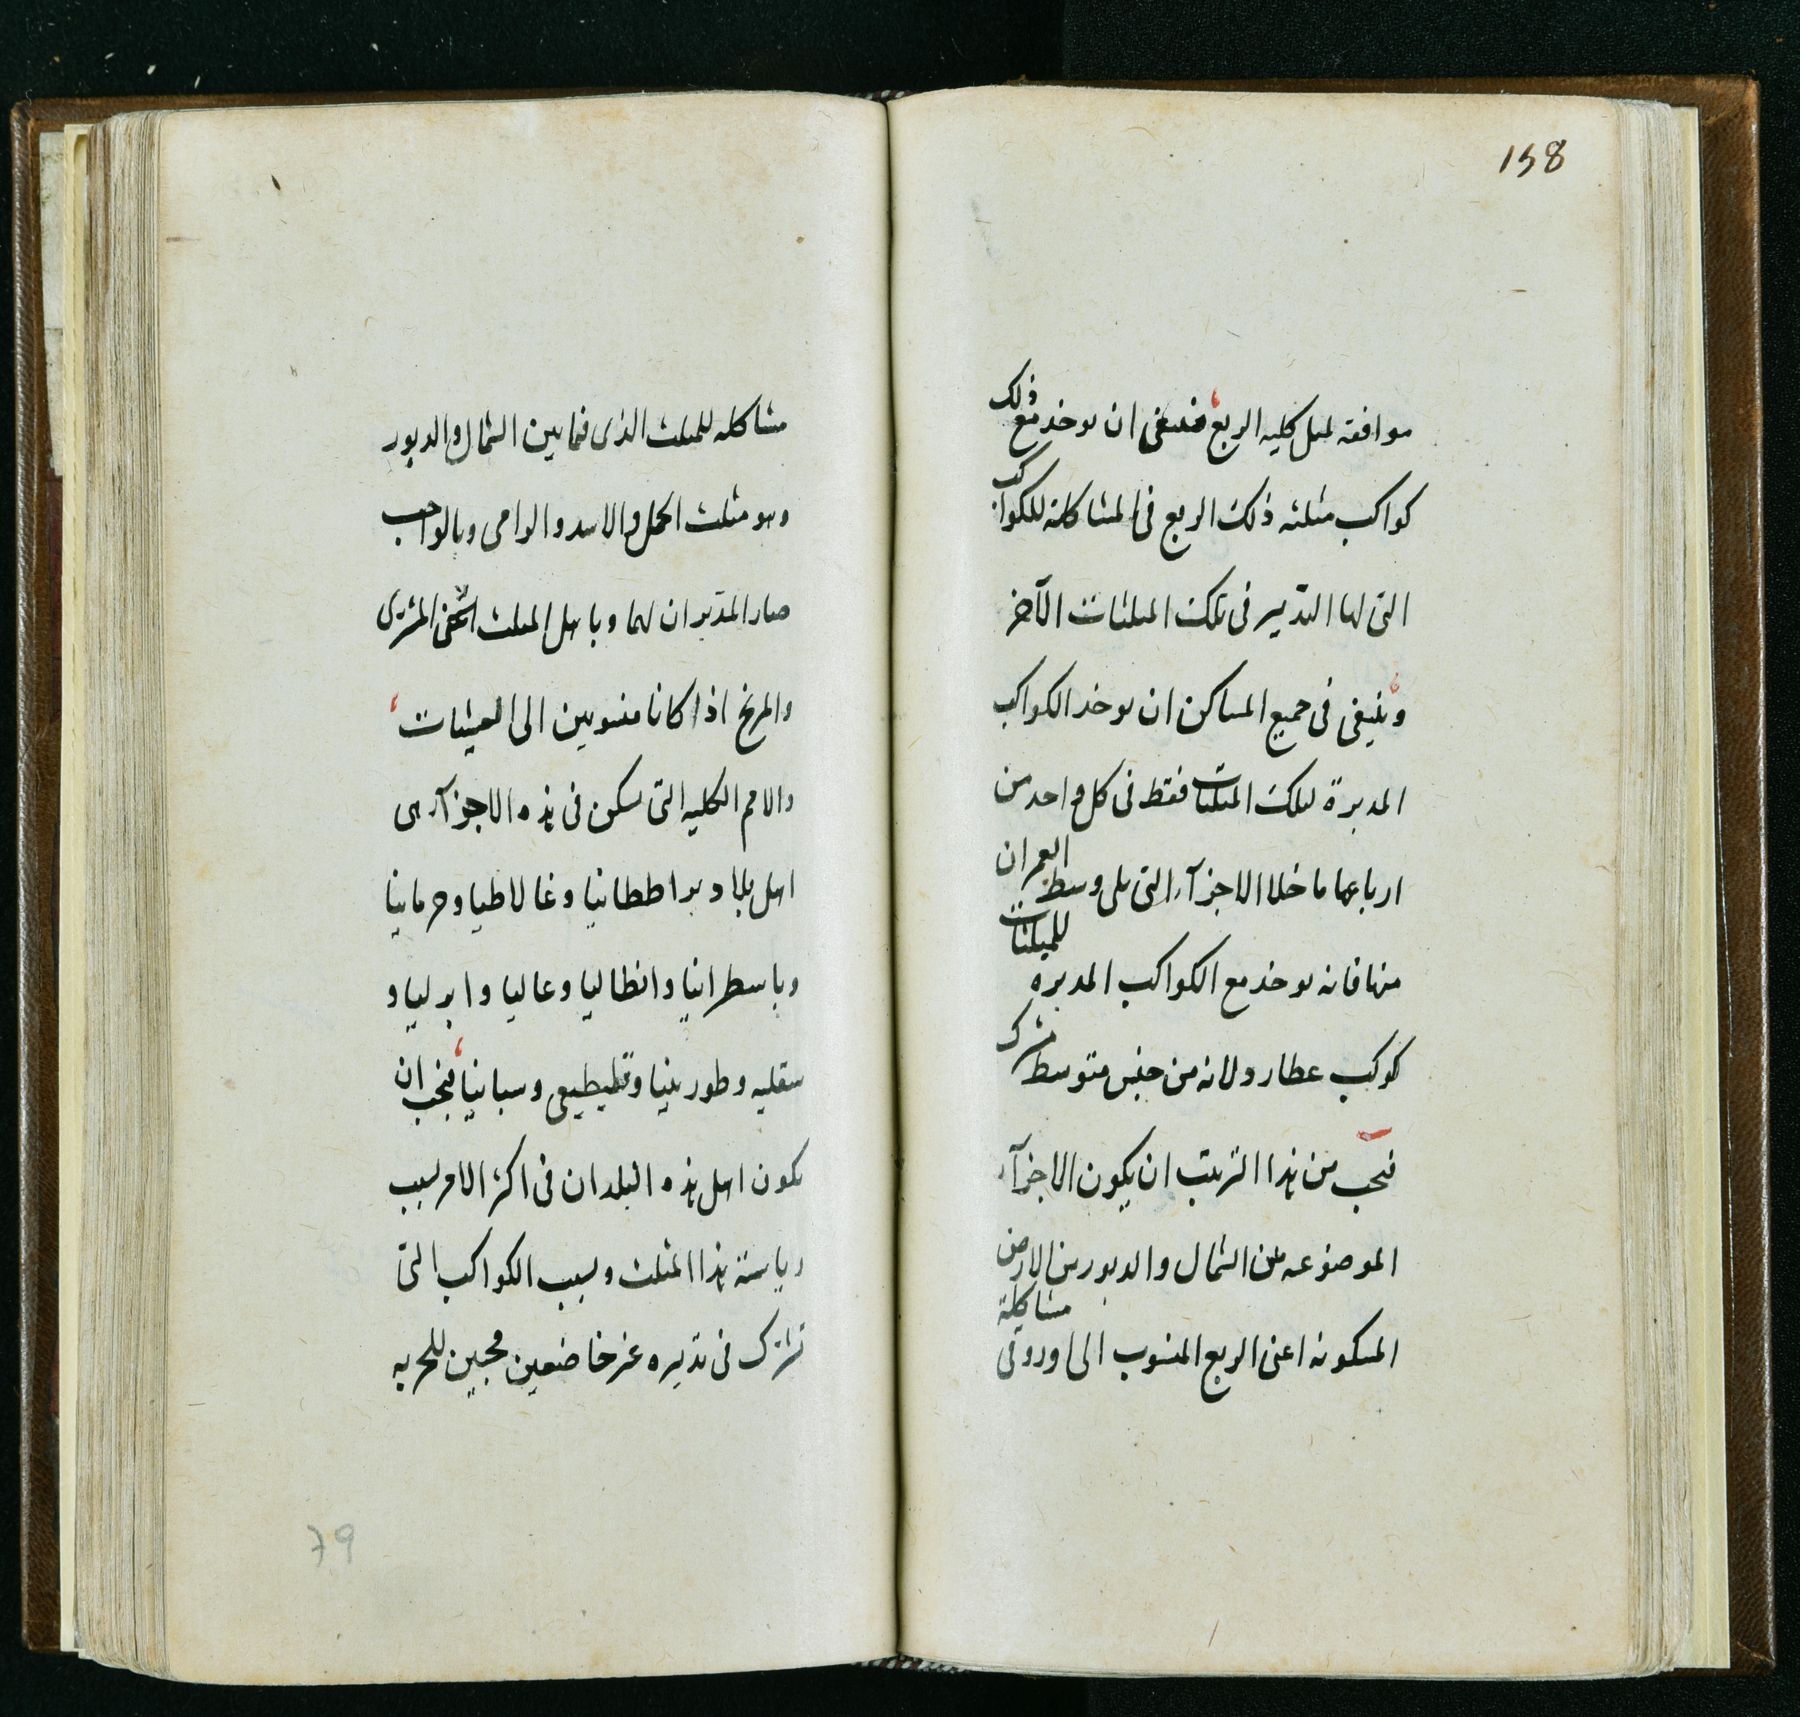 158
موافقه لميل كليه الربع فينبغى ان يوخذ مع ذلك
كواكب مثلثه ذلك الربع فى المشاكلة للكواكب
التى لها التدبير فى تلك المثلثات الآخر
وينبغى فى جميع المساكن ان يوخذ الكواكب
المدبرة لتلك المثلثات فقط فى كل واحد من
ارباعها ما خلا الاجزآء التى يلى وسط العمران
منها فانه يوخذ مع الكواكب المدبره للمثلثات
كوكب عطارد لانه من جنس متوسط مشترك
فيجب من هذا الترتيب ان يكون الاجزآء
الموضوعه من الشمال والدبور من الارض
المسكونه اعنى الربع المنسوب الى اوروفى مشاكلة
مشاكله للمثلث الذى فيما بين الشمال والدبور
وهو مثلث الحمل والاسد والرامى وبالواجب
صار المدبران لهما وباهل المثلث المشترى
والمريخ اذا كانا منسوبين الى العشيات
والامم الكليه التى تسكن فى هذه الاجزآء هى
اهل بلاد براططانيا وغالاطيا وجرمانيا
وباسطرانيا وانطاليا وعاليا وابرليا و
سقليه وطورينيا وقليطيعى وسبانيا فيجب ان
يكون اهل هذه البلدان فى اكثر الامر بسبب
رياسة هذا المثلث وبسبب الكواكب التى
تشترك فى تدبيره غير خاضعين محبين للحريه
79